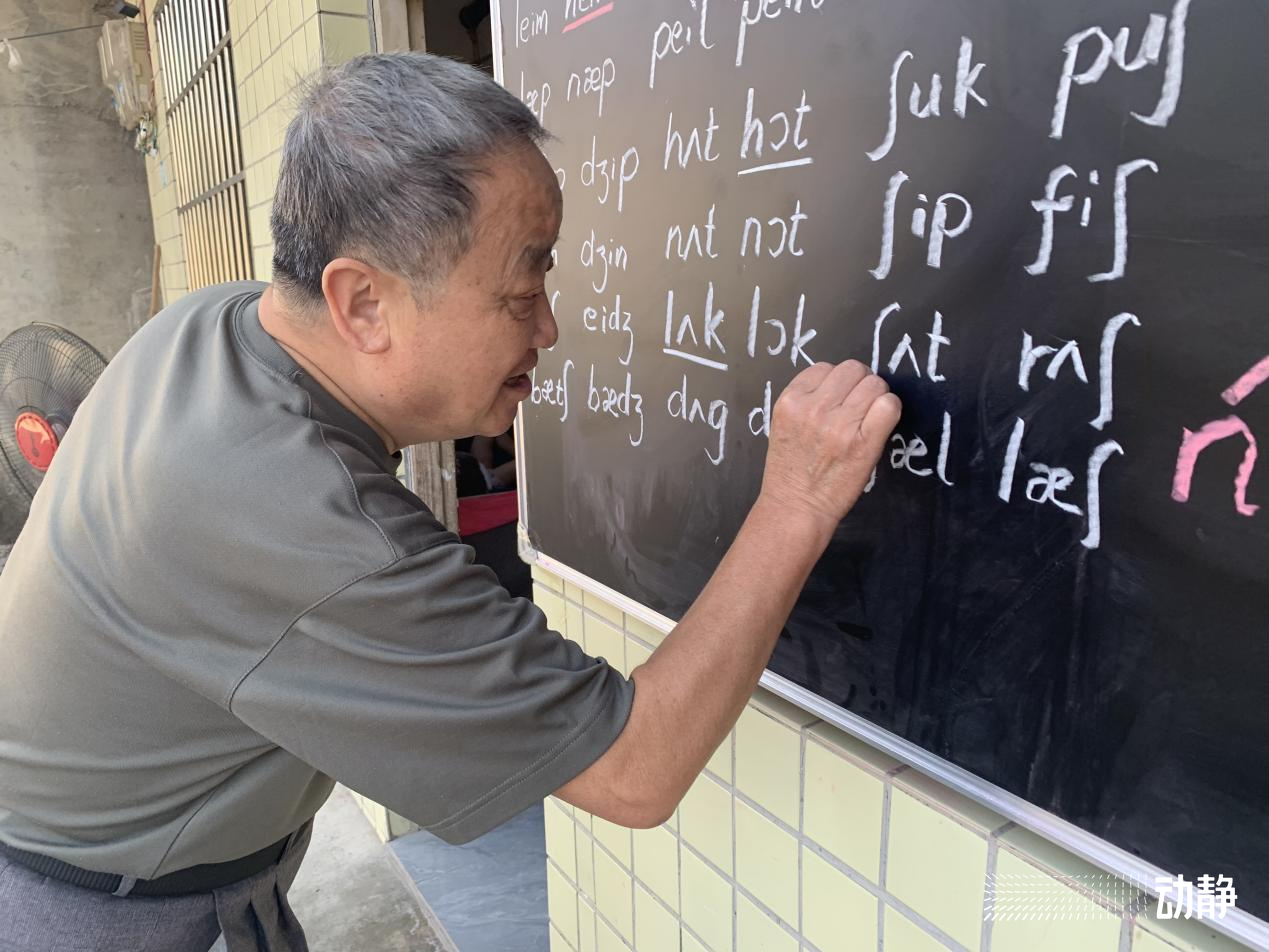 leim
læp næp peil
dʒip hʌt hɔt ʃuk puʃ
dʒin nʌt nɔt ʃip fiʃ
eidʒ lʌk lɔk ʃʌt rʌʃ
bætʃ bædʒ dʌg læʃ
动静